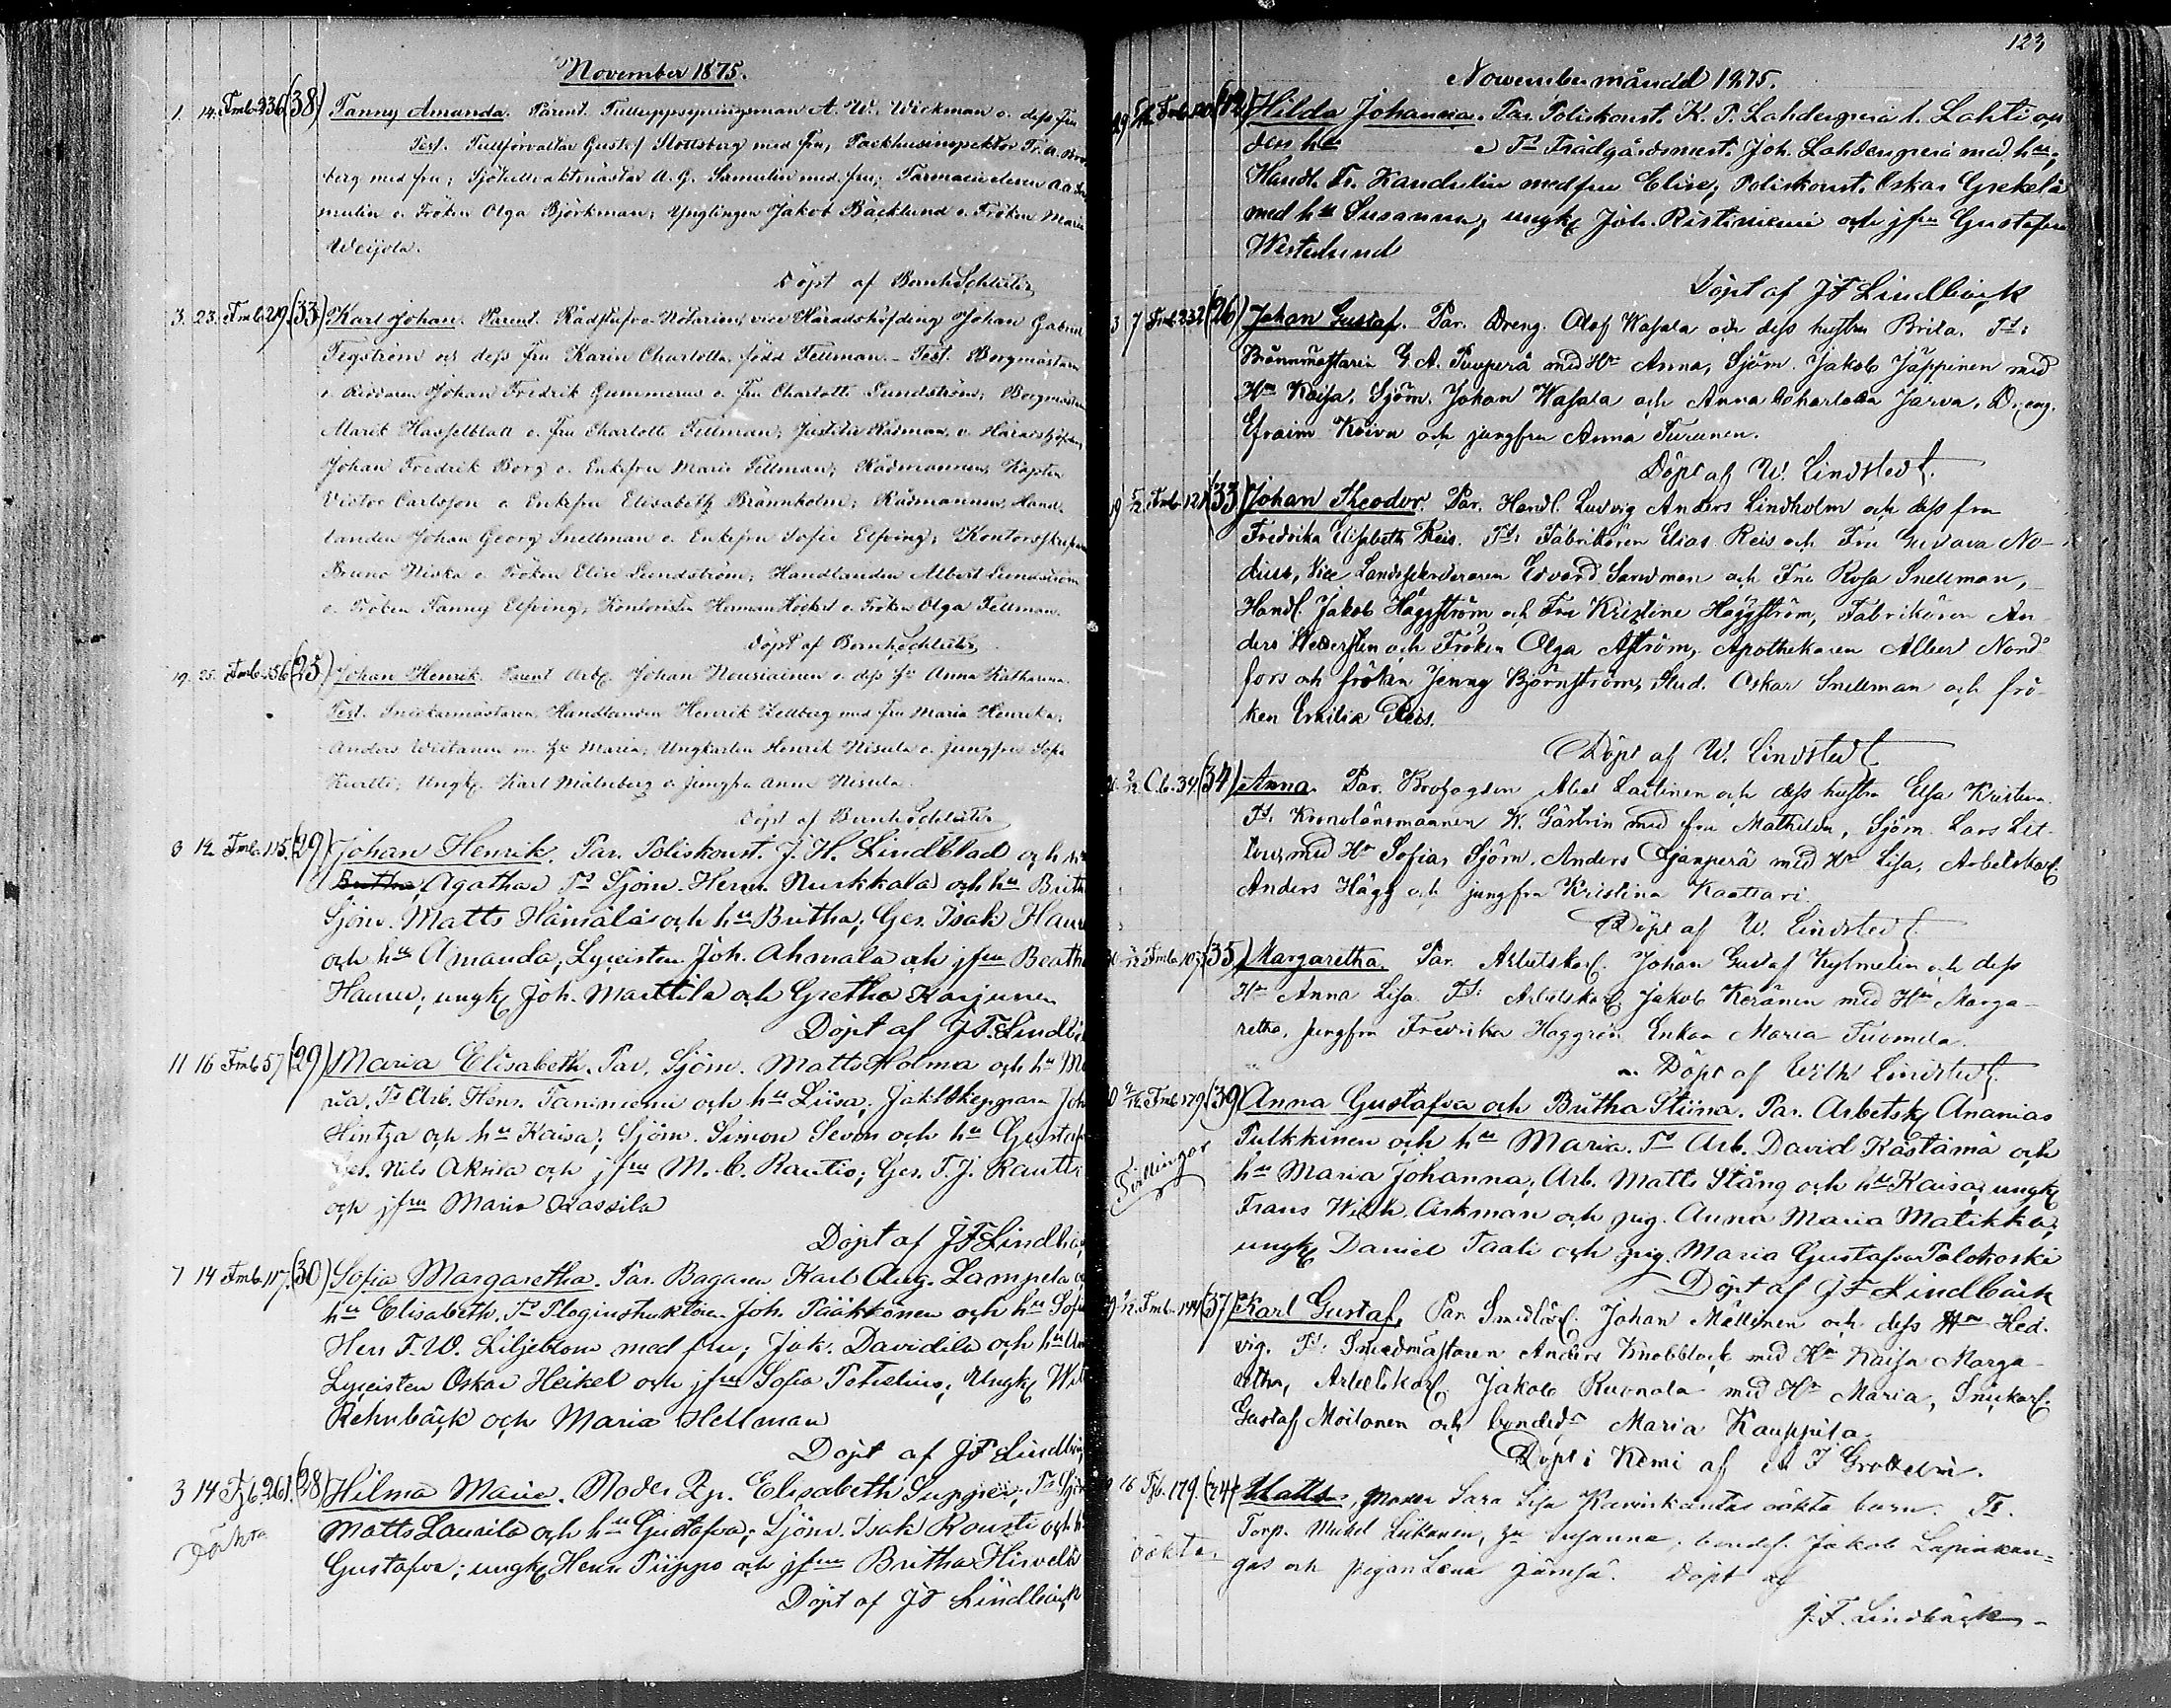 November 1875.
1. 14. Fmb. 336 (38) Fanny Amanda. Parent. Tulluppsyningsman A. W. Wickman o. dess fru
Test. Tullförvaltar Gustaf Slottsberg med fru, Packhusinspektor Fr. A. Bro-
berg med fru; A. G. Samulin med fru; Farmacieeleven
mulin o. Fröken Olga Björkman; Ynglingen Jakob Bäcklund o. Fröken Maria
Weijola.
Döpt af Bernh. Schlüter
3. 23. Fmb. 29. (33) Karl Johan. Parent. Rådstufvu-Notarien, vice Häradshöfding Johan Gabriel
Tegström och dess fru Karin Charlotta född Fellman. - Test. Borgmästaren
o. Riddaren Johan Fredrik Gummerus o. Fru Charlotte Sundström; Borgmästaren
Marik Hasselblatt o. fru Charlotte Fellman; Justitie Rådman, v. Häradshöfding
Johan Fredrik Borg o. Enkefru Maria Fellman; Rådmannen, Kapten
Victor Carlsson o. Enkefru Elisabeth Brännholm; Rådmannen, Hand-
landen Johan Georg Snellman o. Enkefru Sofie Elfving; Kontorsskrifvaren
Bruno Niska o. Fröken Elise Sundström; Handlanden Albert Sundström
o. Fröken Fanny Elfving; Kontoristen Herman Höckert o. Fröken Olga Fellman.
Döpt af Bernh. Schlüter
19. 25. Fmb. 156 (25) Johan Henrik. Parent Arbk. Johan Nousiainen o. dess hu Anna Katharina
Test. Snickarmästaren, Handlanden Henrik Zellberg med fru Maria Henrika;
Anders Wiitanen m. hu Maria; Ungkarlen Henrik Nisula o. jungfru Sofi
Kurtti; Ungk. Karl Malmberg o. Jungfru Anna Nisula.
Döpt af Bernh. Schlüter
3 12 Fmb. 115. (29) Johan Henrik. Par. Poliskonst. J. H. Lindblad och hu
Britha Agatha. Ts Sjöm. Henr. Nurkkala och hu Brith
Sjöm. Matts Hämälä och hu Britha; Ges. Isak Hann
och hu Amanda; Lyceisten Joh. Ahmala och jfru Beatha
Hannu; ungk. Joh. Marttila och Gretha Karjunen
Döpt af J F Lindbä
11 16 Fmb 57 (29) Maria Elisabeth. Par. Sjöm. Matts Holma och hu Ma
ria. Ts Arb. Henr. Taniniemi och hu Liisa; Jaktskepparn Joh
Hintza och hu Kaisa; Sjöm. Simon Sevon och hu Gustaf
Ges. Nils Akola och jfru M. C. Rautio; Ges. F. J. Rautio
och jfru Maria Kassila
Döpt af J F Lindbä
7 14 Fmb. 117. (30) Sofia Margaretha. Par. Bagaren Karl Aug. Lampela o
hu Elisabeth. Ts Ploginstruktören Joh. Pääkkönen och hu Sofi
Herr F. W. Liljeblom med fru; Jak. Davidila och hu
Lyceisten Oskar Heikel och jfru Sofia Pohelius; Ungk. Wil
Rehnbäck och Maria Hellman
Döpt af J F Lindbä
3 14 Fjb. 261. (28) Hilma Maria. Moder Pp. Elisabeth Supperi, Ts Sjöm
oäkta Matts Laurila och hu Gustafva; Sjöm. Isak Rousti och h
Gustafva; ungk. Henr. Piippo och jfru Britha Hirvelä
Döpt af J F Lindbäck
123
Novembermånad 1875.
29 Fmb. (12) Hilda Johanna. Par. Poliskonst. K. P. Lahdenperä l. Lahti och
dess hu Ts Trädgårdsmest. Joh. Lahdenperä med hu;
Handl. Fr. Kandulin med fru Elise; Poliskonst. Oskar Grekelä
med hu Susanna; ungk. Joh. Ristiniemi och jfru Gustafva
Westerlund
Döpt af J F Lindbäck
3 7 Fmb. 332 (26) Johan Gustaf. Par. Dreng. Olof Wasala och dess hustru Brita. Ts:
Brännmästaren G. A. Puuperä med Hu Anna, Sjöm. Jakob Jäppinen med
Hu Kaisa, Sjöm. Johan Wasala och Anna Charlotta Jarva, Dreng.
Efraim Koivu och jungfru Anna Turunen.
Döpt af W. Lindstedt.
19 Fmb. 121 (33) Johan Theodor. Par. Handl. Ludvig Anders Lindholm och dess fru
Fredrika Elisabeth Reis. Ts: Fabrikören Elias Reis och Fru No-
dius, Vice Landssekreteraren Edvard Sandman och Fru Rosa Snellman,
Handl. Jakob Häggström och Fru Kristine Häggström, Fabrikören An-
ders Westersten och Fröken Olga Aström, Apothekaren Albert Nord-
fors och fröken Jenny Björnström, Stud. Oskar Snellman och frö-
ken Emilia Reis.
Döpt af W. Lindstedt
Cb. 34. (34) Anna. Par. Brofogden Abel Laitinen och dess hustru Elsa Kristina.
Ts. Kronolänsmannen W. Gästrin med fru Mathilda, Sjöm. Lars Lit-
tow, med Hu Sofia, Sjöm. Anders Ojanperä med Hu Lisa, Arbetskarl.
Anders Hägg och jungfru Kristina Kaattari
Döpt af W. Lindstedt
Fmb. 107. (35) Margaretha. Par. Arbetskarl. Johan Gustaf Kylmelin och dess
Hu Anna Lisa. Ts: Arbetskarl Jakob Keränen med Hu Marga-
retha, Jungfru Fredrika Haggrén Enkan Maria Tuomela.
Döpt af Wilh Lindstedt.
Fmb. 179. (39) Anna Gustafva och Britha Stiina. Par. Arbetsk. Ananias
Tvillingar Pulkkinen och hu Maria. Ts Arb. David Kästämä och
hu Maria Johanna; Arb. Matts Stång och hu Kaisa; ungk.
Frans Wilh. Arkman och pig. Anna Maria Matikka;
ungk. Daniel Taali och pig. Maria Gustafva Palokoski
Döpt af J F Lindbäck
Fmb. 144 (37) Karl Gustaf, Par. Smedkarl. Johan Mällinen och dess Hu Hed-
vig. Ts: Smedmästaren Anders Knobblock med Hu Kaisa Marga-
retha, Arbetskarl Jakob Ruonala med Hu Maria, Snickarl.
Gustaf Moilanen och bonded. Maria Kauppila.
Döpt i Kemi af J Grotelin.
16 Fjb. 179. (24) Matts, Moder Sara Lisa Karvinkantas oäkta barn. Ts.
oäkta. Torp. Mickel Liikanen, hu Susanna, bondes. Jakob Lapinkan-
gas och pigan Lena Jämsä. Döpt af
J. F. Lindbäck